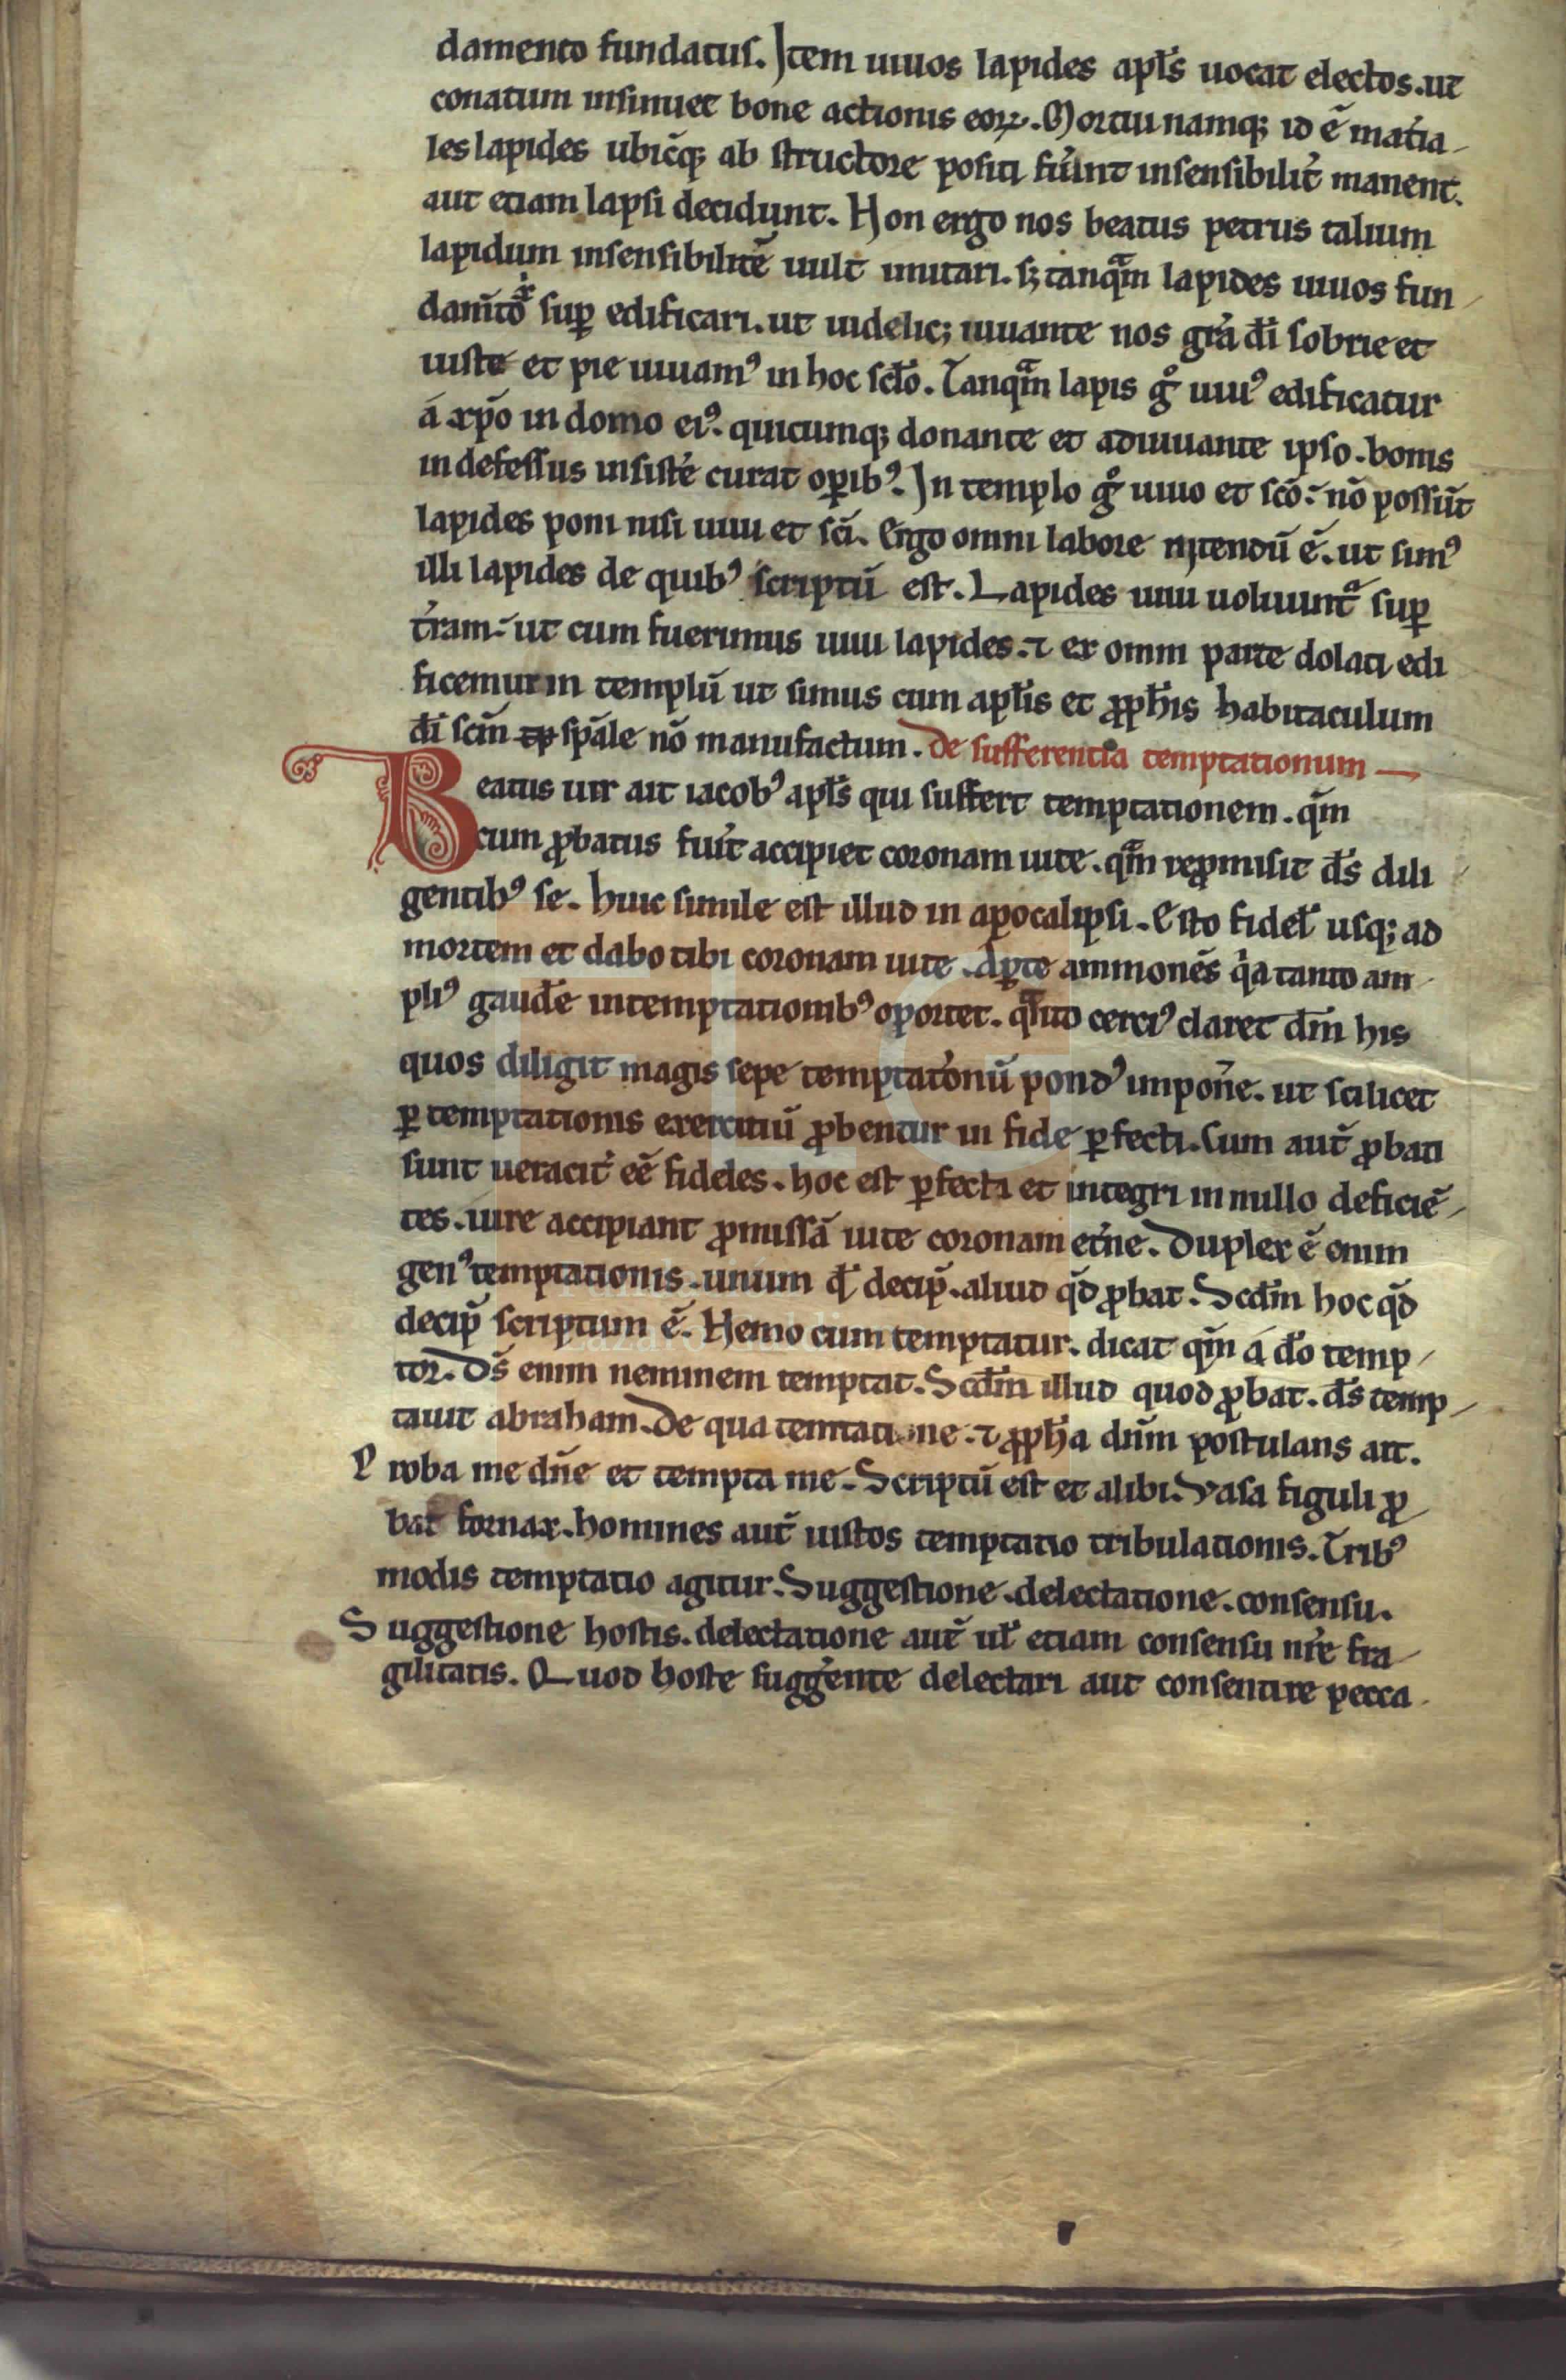 damento fundatus. Item uiuos lapides apl̃s uocat electos. ut
conatum insinuet bone actionis eoꝝ. Mortui namq; id ẽ mat̾ia
les lapides ubicũq; ab structore positi fu̾int insensibilit̾ manent.
aut etiam lapsi decidunt. Non ergo nos beatus petrus talium
lapidum insensibilitẽ uult imitari. sꝫ tanqᷓm lapides uiuos fun
dam̃to sup̱ edificari. ut uidelicꝫ iuuante nos gr̃a dĩ sobrie et
iuste et pie uiuamꝰ in hoc scło. Tanqᷓm lapis gͦ uiuꝰ edificatur
á xp̃o in domo eiꝰ. quicumq; donante et adiuuante ipso. bonis
indefessus insist̾e curat oꝑibꝰ. In templo gͦ uiuo et sc̃o. nõ possũt
lapides poni nisi uiui et sc̃i. Ergo omni labore nitendũ ẽ. ut simꝰ
illi lapides de quibꝰ scriptũ est. Lapides uiui uoluunt᷑ suꝑ
t̾ram. ut cum fuerimus uiui lapides. ⁊ ex omni parte dolati edi
ficemur in templũ ut simus cum apl̃is et ꝓph̃is habitaculum
dĩ sc̃m sp̃ale nõ manufactum. De sufferentia temptationum
Beatus uir ait iacobꝰ apl̃s qui suffert temptationem. qm̃
cum ꝓbatus fu̾it accipiet coronam uite. qᷓm reꝓmisit dš dili
gentibꝰ se. huic simile est illud in apocalipsi. Esto fidel̃ usq; ad
mortem et dabo tibi coronam uite. Aꝑte ammonẽs qͥa tanto am
pliꝰ gaude̾ in temptationibꝰ oportet. qᷓnto certiꝰ claret dm̃ his
quos diligit magis sepe temptat̾onũ pondꝰ imponẽ. ut scilicet
ꝑ temptationis exercitiũ ꝓbentur in fide ꝑfecti. Cum aut̃ ꝓbati
sunt ueracit̾ eẽ fideles. hoc est ꝑfecti et integri in nullo deficiẽ
tes. iure accipiant ꝓmissã uite coronam et̾ne. Duplex ẽ enim
genꝰ temptationis. unum qd̃ decip̃. aliud qd̃ ꝓbat. Scdm̃ hoc qd̃
decip̃ scriptum ẽ. Nemo cum temptatur. dicat qm̃ á dõ temp
tor. Dš enim neminem temptat. Scdm̃ illud quod ꝓbat. dš temp
tauit abraham. De qua tentatione. ⁊ ꝓph̃a dñm postulans ait.
Proba me dñe et tempta me. Scriptũ est et alibi. Vasa figuli ꝓ
bat fornax. homines aut̃ iustos temptatio tribulationis. Tribꝰ
modis temptatio agitur. Suggestione. delectatione. consensu.
Suggestione hostis. delectatione aut̃ ul̃ etiam consensu nr̃e fra
gilitatis. Quod hoste sugge̾nte delectari aut consentire pecca